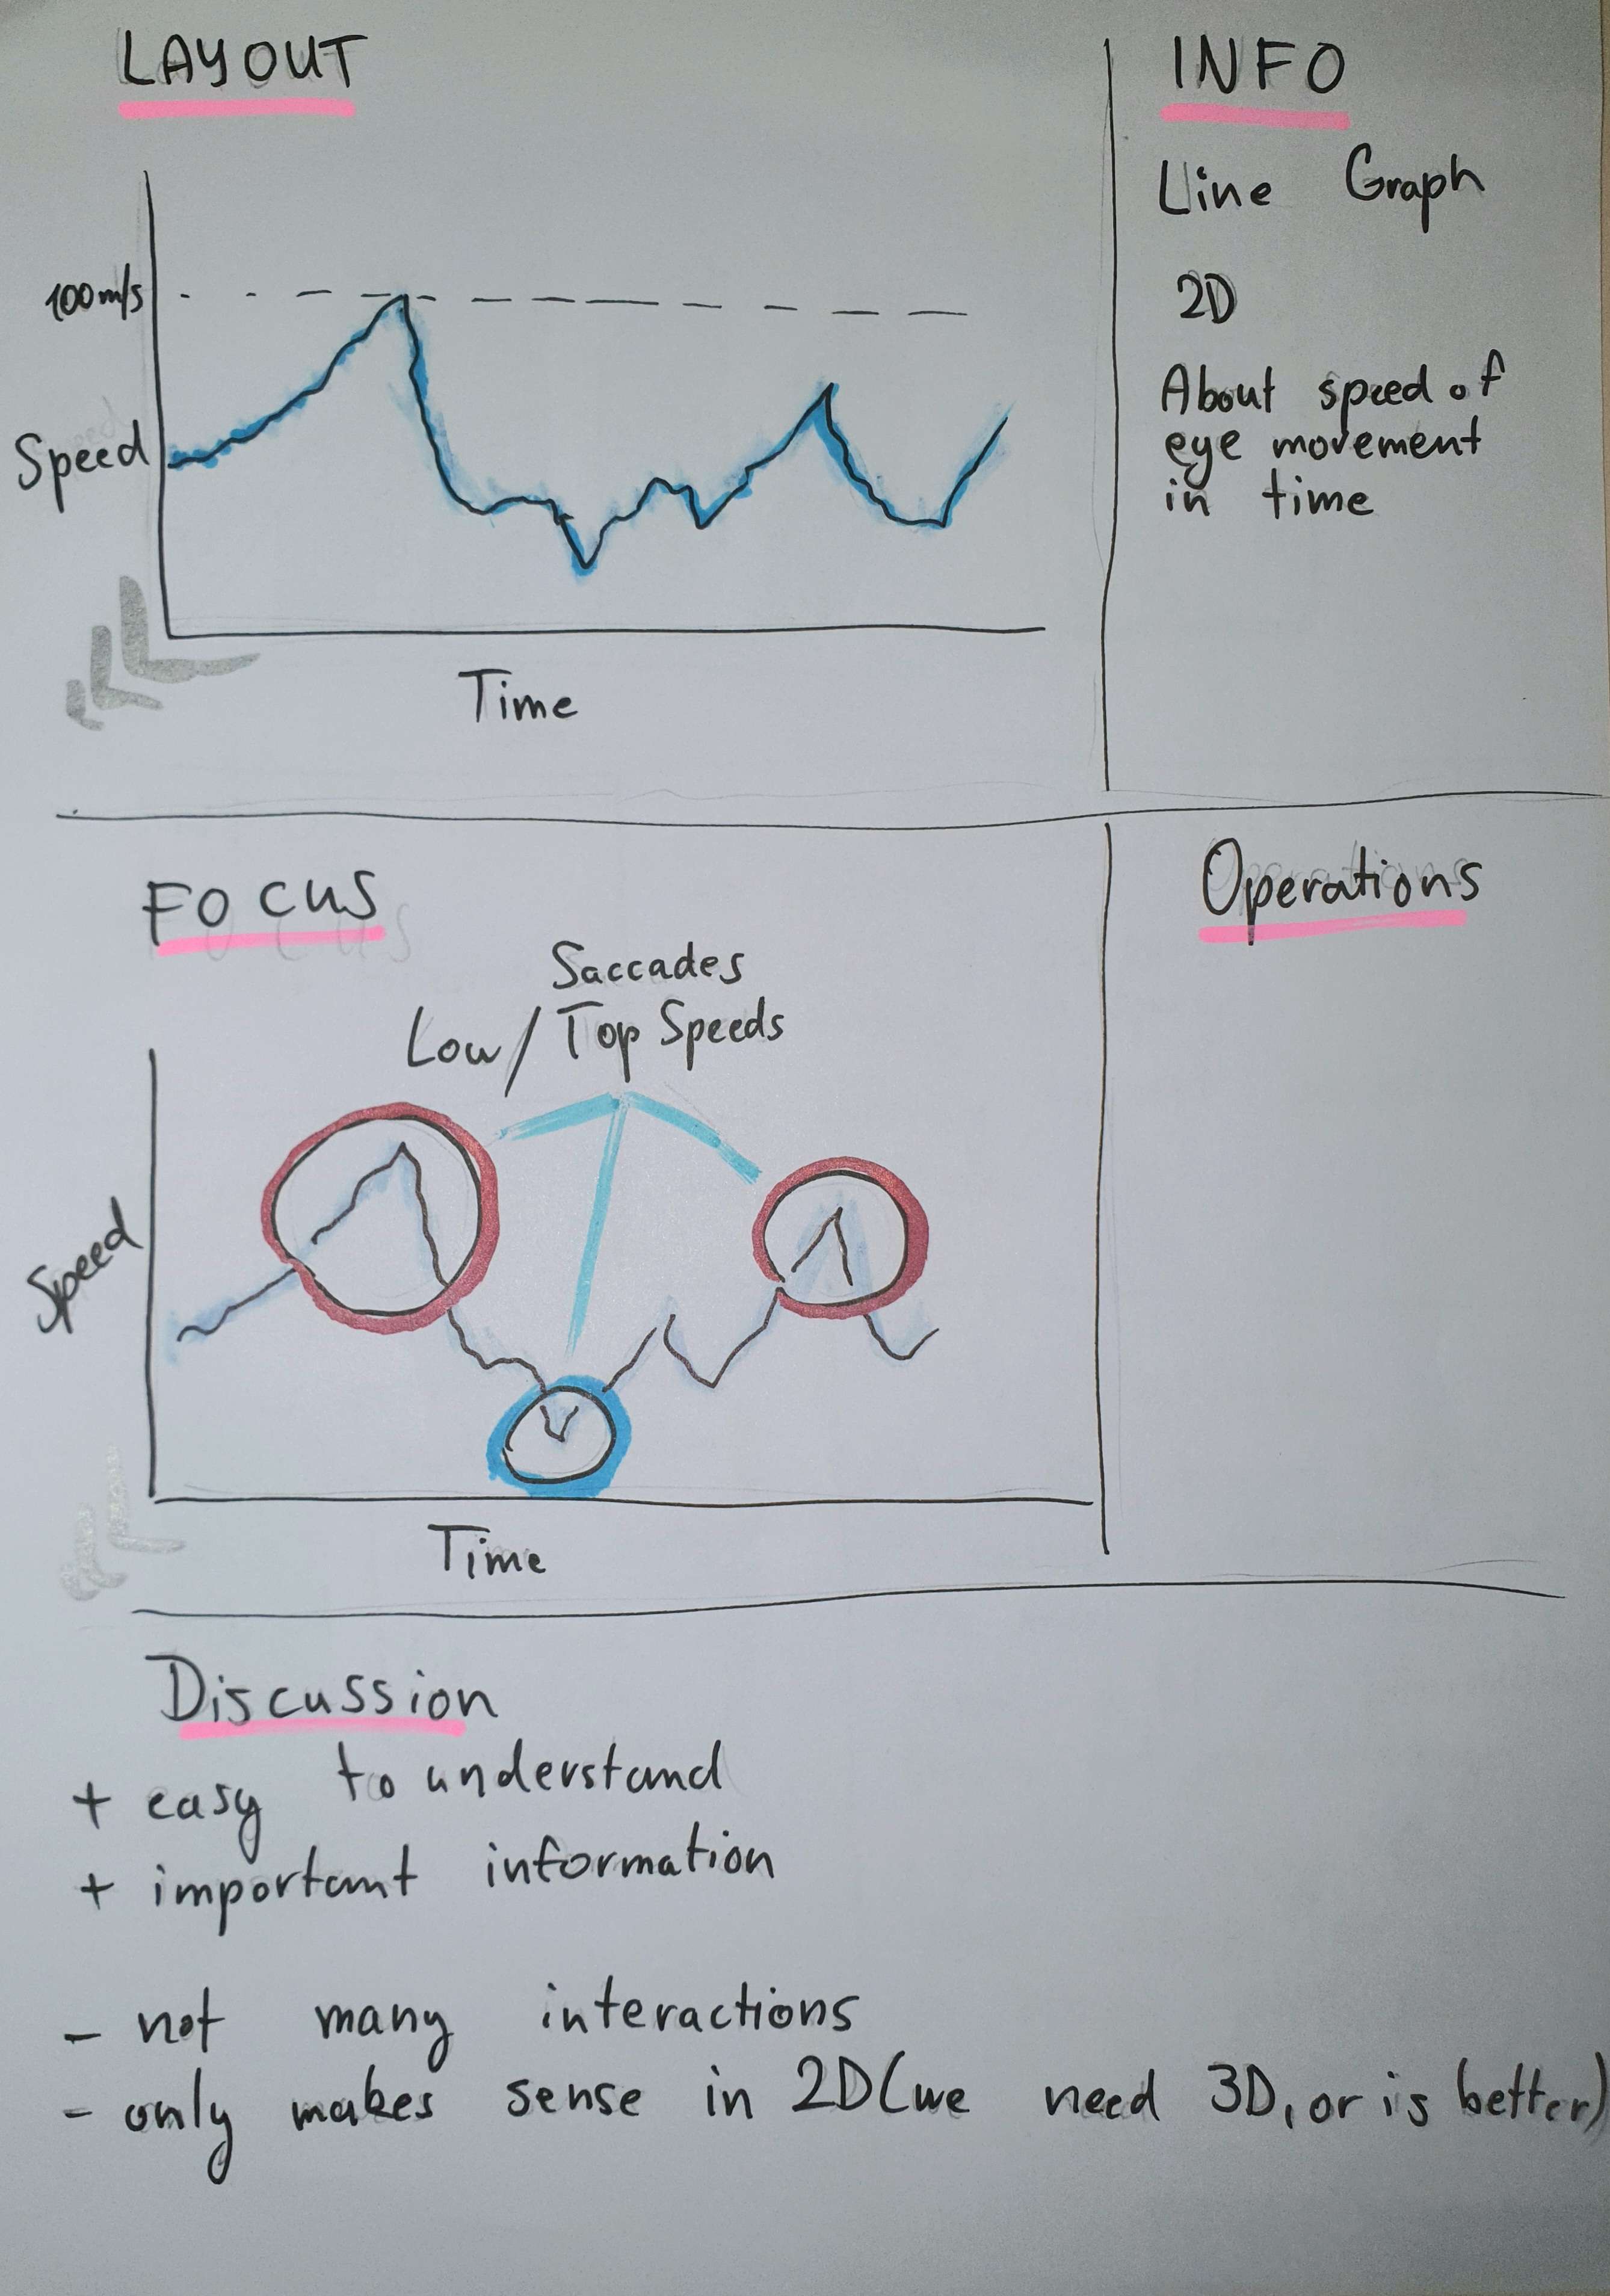 LAYOUT
100m/s
Speed
Time
INFO
Line Graph
2D
About speed of
eye movement
in time
FOCUS
Saccades
Low / Top Speeds
Speed
Time
Operations
Discussion
+ easy to understand
+ important information
- not many interactions
- only makes sense in 2D (we need 3D, or is better)